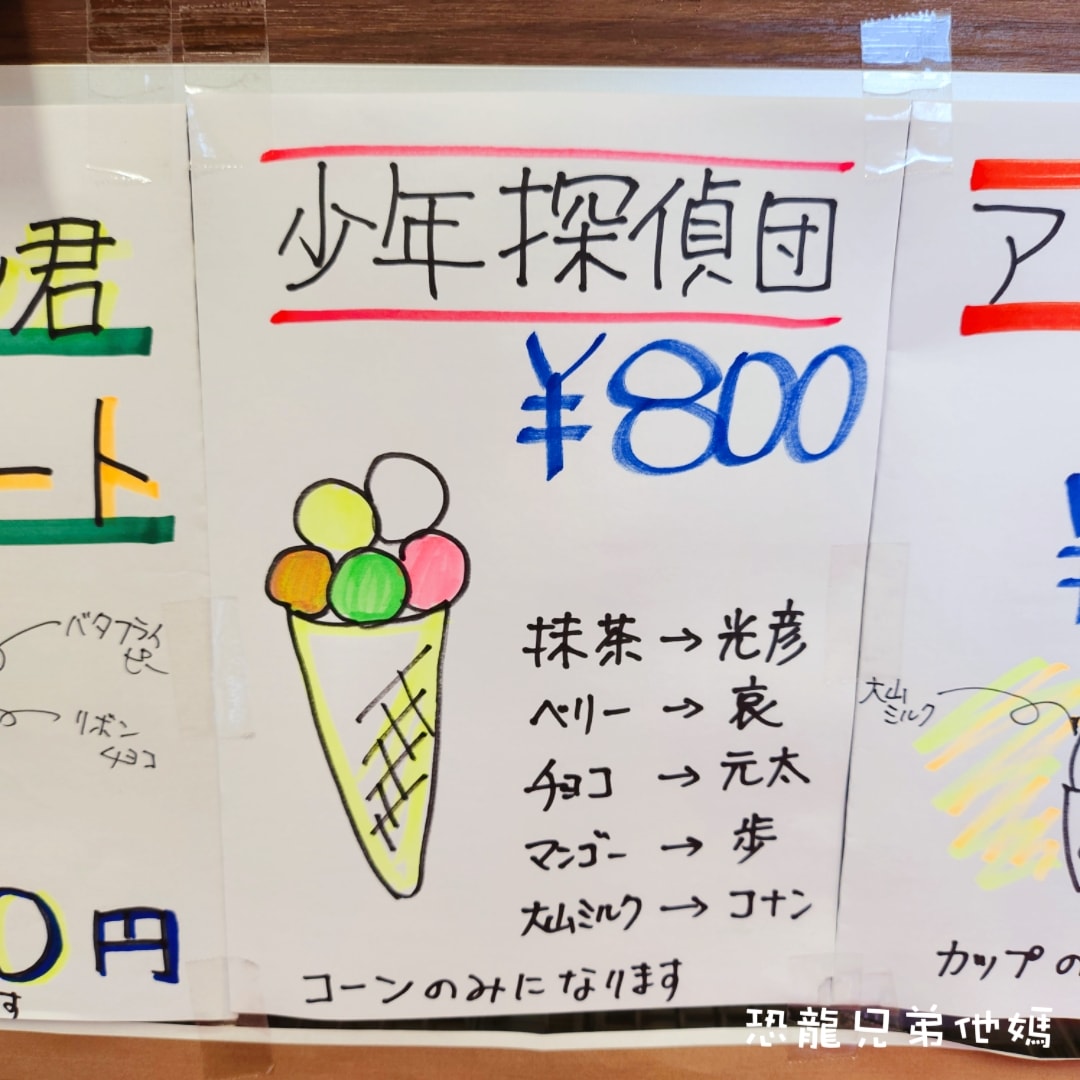 君
ート
バタフライ
ピー
リボン
チョコ
0円
す
少年探偵団
¥800
抹茶→光彦
ベリー→哀
チョコ→元太
マンゴー→歩
大山ミルク→コナン
コーンのみになります
ア
¥
大山
ミルク
カップの
恐龍兄弟他媽